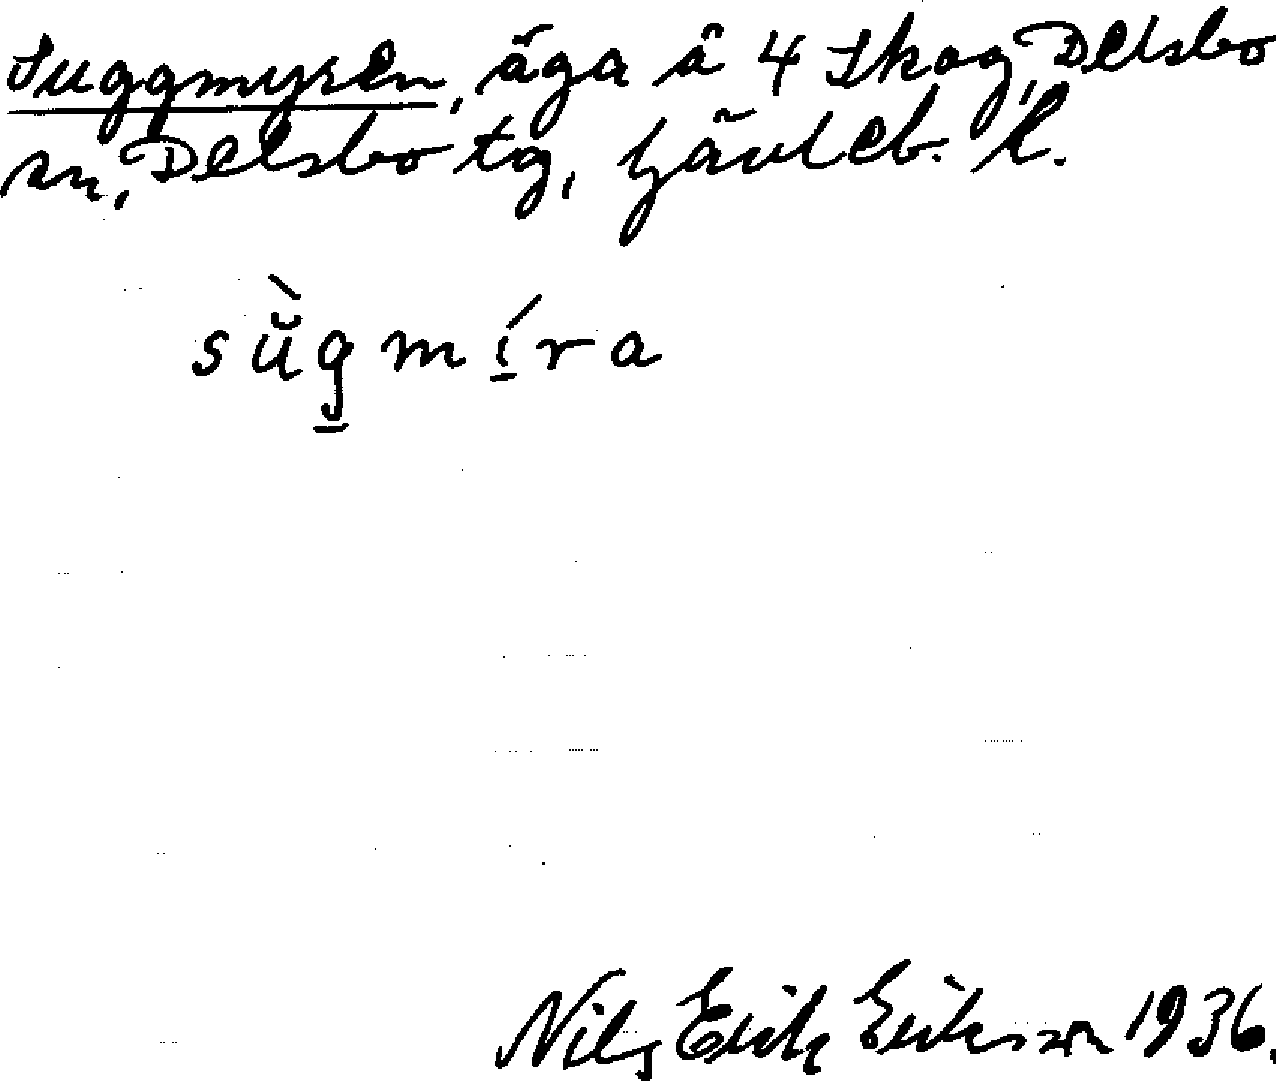 Suggmyren, äga å 4 Skog, Delsbo
sn, Delsbo tg, Gävleb. l.
sŭ̀gmíra
Nils Erik Eriksson 1936.